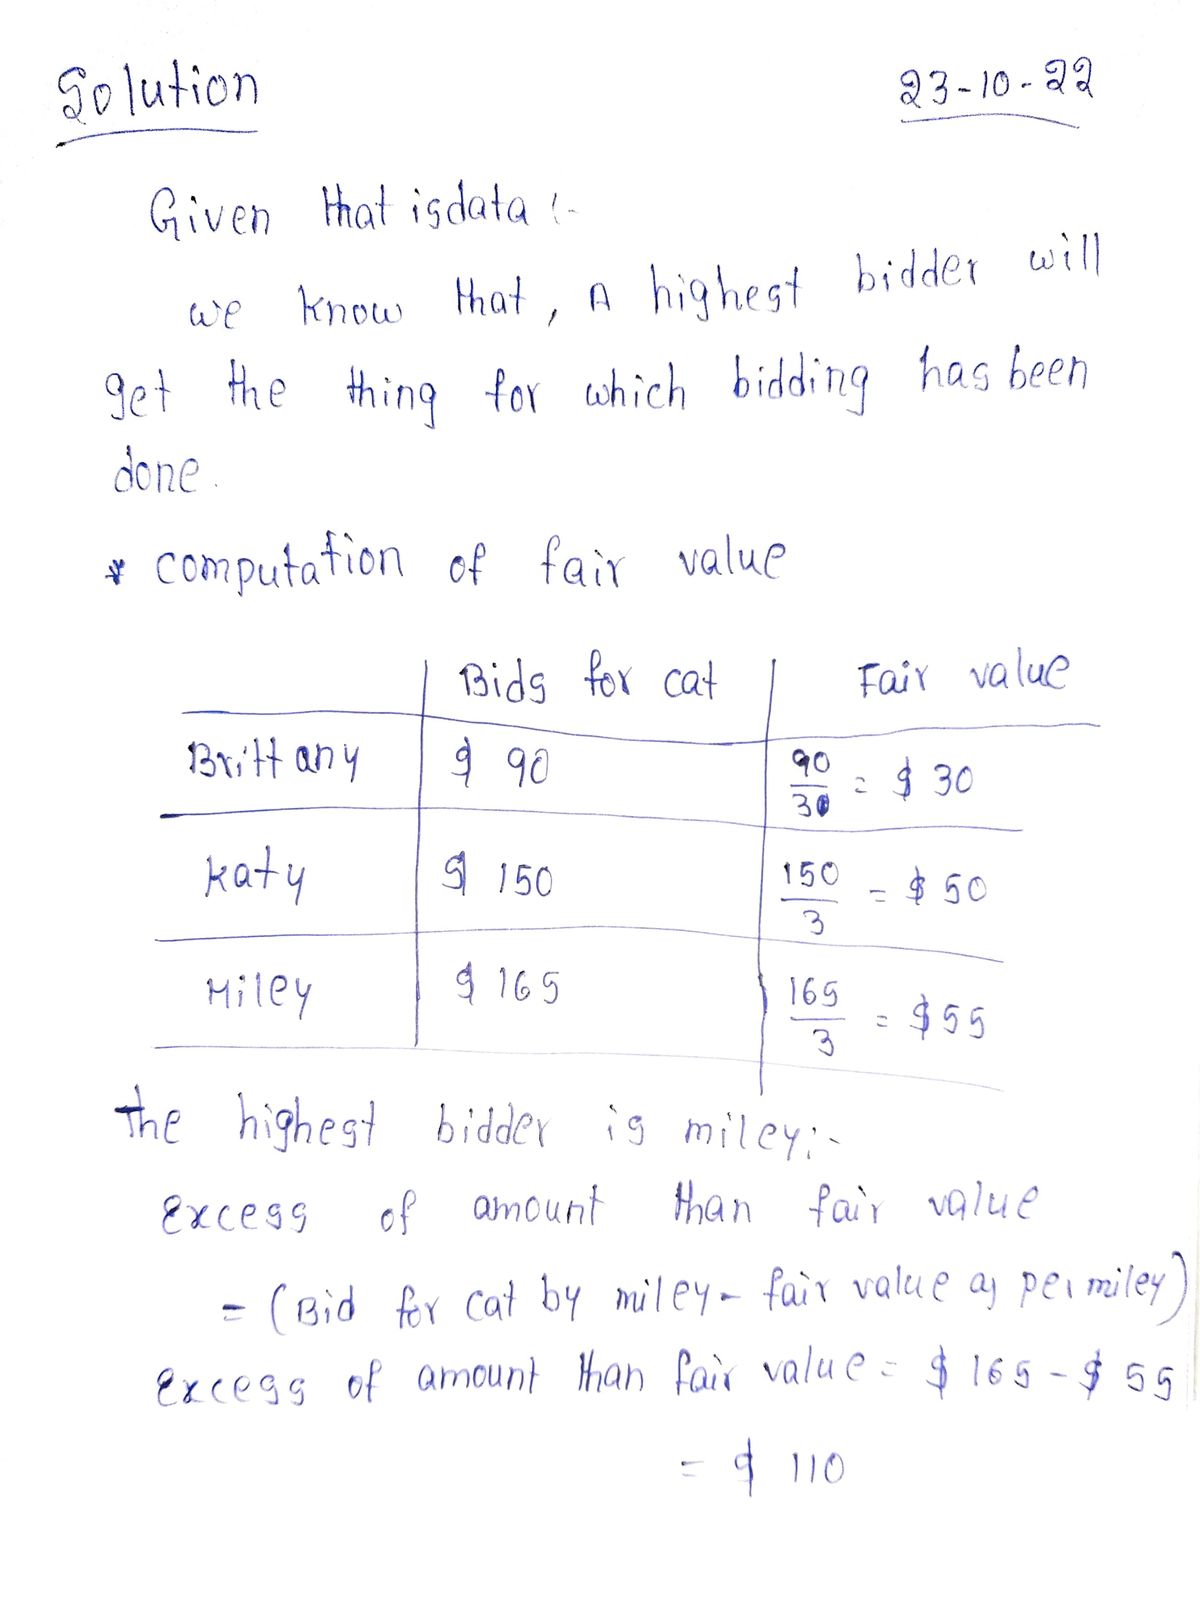 Solution
23-10-22
Given that is data :-
we know that, A highest bidder will
get the thing for which bidding has been
done.
* computation of fair value
Bids for cat Fair value
Brittany $ 90 90/3 = $ 30
Katy $ 150 150/3 = $ 50
Miley $ 165 165/3 = $55
The highest bidder is miley:-
Excess of amount than fair value
= (Bid for cat by miley - fair value as per miley)
Excess of amount than fair value = $ 165 - $ 55
= $ 110